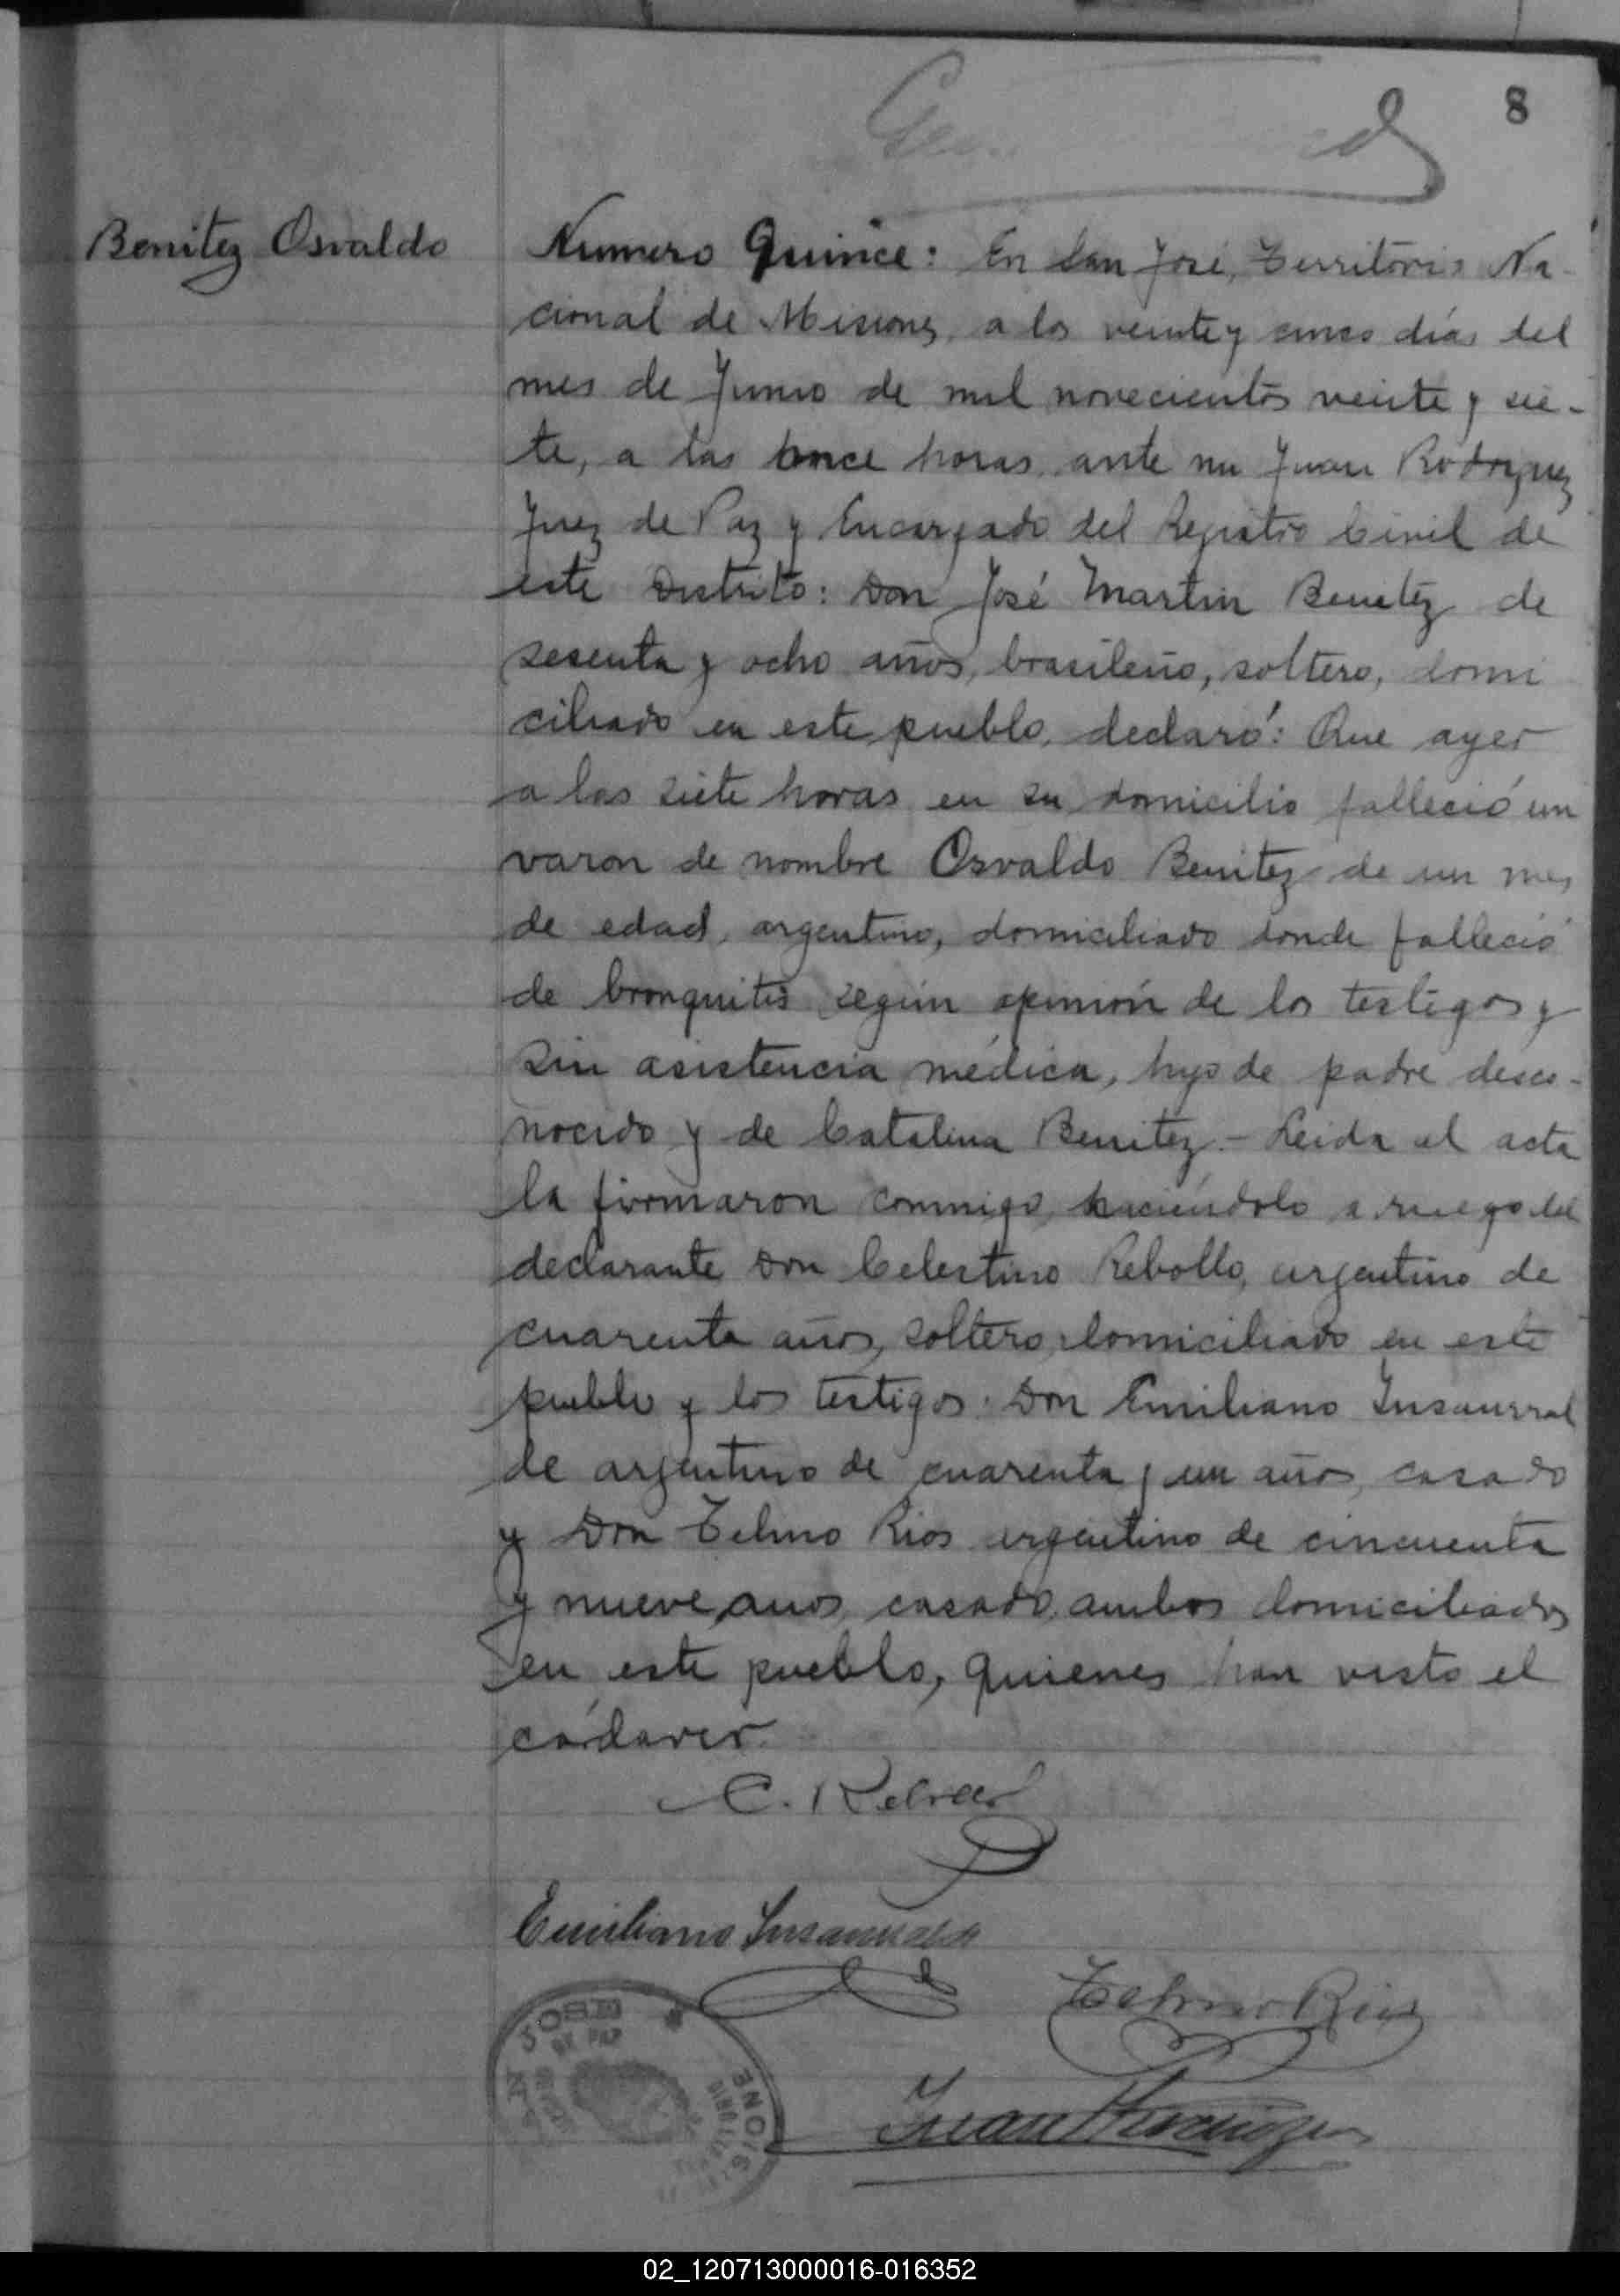 8
Benitez Osvaldo
Numero Quince: En San José, Territorio Na-
cional de Misiones, a los veinte y cinco días del
mes de Junio de mil novecientos veinte y sie-
te, a las once horas, ante mi Juan Rodriguez
Juez de Paz y Encargado del Registro Civil de
este Distrito: Don José Martin Benitez de
sesenta y ocho años, brasileño, soltero, domi
ciliado en este pueblo, declaró: Que ayer
a las siete horas en su domicilio falleció un
varon de nombre Osvaldo Benitez de un mes
de edad, argentino, domiciliado donde falleció
de bronquitis según opinión de los testigos y
sin asistencia médica, hijo de padre desco-
nocido y de Catalina Benitez.- Leida el acta
la firmaron conmigo, haciéndolo a ruego del
declarante Don Celestino Rebollo, argentino de
cuarenta años, soltero, domiciliado en este
pueblo y los testigos: Don Emiliano Insaurral
de argentino de cuarenta y un años, casado
y Don Telmo Rios argentino de cincuenta
y nueve años, casado, ambos domiciliados
en este pueblo, quienes han visto el
cádaver.
C. Rebollo
Emiliano Insaurralde
Telmo Rios
JOSE
DE PAZ
MISIONES
Juan Rodriguez
02_120713000016-016352